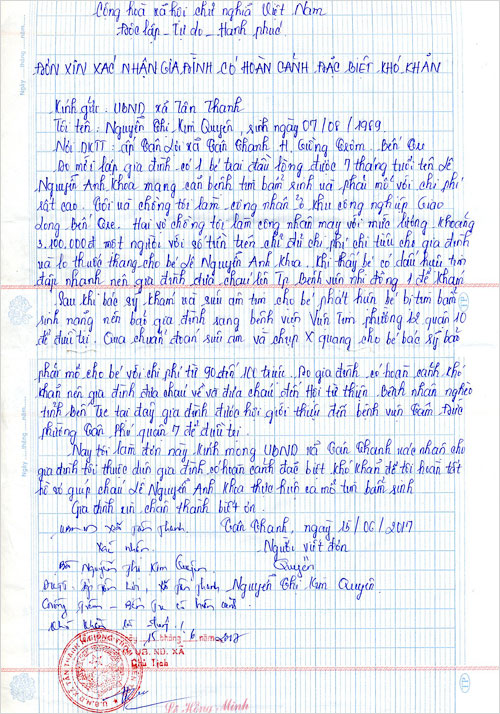 Cộng hoà xã hội chủ nghĩa Việt Nam
Độc lập - Tự do - Hạnh phúc
ĐƠN XIN XÁC NHẬN GIA ĐÌNH CÓ HOÀN CẢNH ĐẶC BIỆT KHÓ KHĂN
Kính gửi: UBND xã Tân Thanh
Tôi tên: Nguyễn Thị Kim Quyên, sinh ngày 07/08/1989
Nơi ĐKTT: ấp Tân Lợi xã Tân Thanh H. Giồng Trôm. Bến Tre
Do mới lập gia đình có 1 bé trai đầu lòng được 7 tháng tuổi tên Lê
Nguyễn Anh Khoa mang căn bệnh tim bẩm sinh và phải mổ với chi phí
rất cao. Tôi và chồng tôi làm công nhân ở khu công nghiệp Giao
Long Bến Tre. Hai vợ chồng tôi làm công nhân may với mức lương khoảng
3.100.000đ một người với số tiền trên chỉ đủ chi phí chi tiêu cho gia đình
và lo thuốc thang cho bé Lê Nguyễn Anh Khoa. Khi thấy bé có dấu hiệu tim
đập nhanh nên gia đình đưa cháu lên Tp Bệnh viện nhi đồng 1 để khám
Sau khi bác sỹ khám và siêu âm tim cho bé phát hiện bé bị tim bẩm
sinh nặng nên gia đình sang bệnh viện Viện Tim phường 12 quận 10
để điều trị. Qua chuẩn đoán siêu âm và chụp X quang cho bé bác sỹ bảo
phải mổ cho bé với chi phí từ 90 đến 100 triệu. Do gia đình có hoàn cảnh khó
khăn nên gia đình đưa cháu về và đưa cháu đến Hội từ thiện Bệnh nhân nghèo
tỉnh Bến Tre tại đây gia đình được hội giới thiệu đến bệnh viện Tâm Đức
phường Tân Phú quận 7 để điều trị.
Nay tôi làm đơn này kính mong UBND xã Tân Thanh xác nhận cho
gia đình tôi thuộc diện gia đình có hoàn cảnh đặc biệt khó khăn để tôi hoàn tất
hồ sơ giúp cháu Lê Nguyễn Anh Khoa thực hiện ca mổ tim bẩm sinh
Gia đình xin chân thành biết ơn.
UBND xã Tân Thanh
Tân Thanh, ngày 15/06/2017
Xác nhận
Người viết đơn
Bà Nguyễn Thị Kim Quyên
Quyên
xã Tân Thanh
Nguyễn Thị Kim Quyên
Giồng Trôm - Bến Tre có hoàn cảnh
khó khăn là thật
Ngày 15 tháng 6 năm 2017
TM. UB. ND. XÃ
Chủ Tịch
Lê Hồng Minh